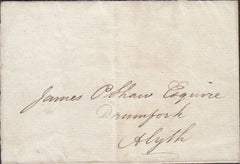 James P Shaw Esquire
Drumfork
Alyth